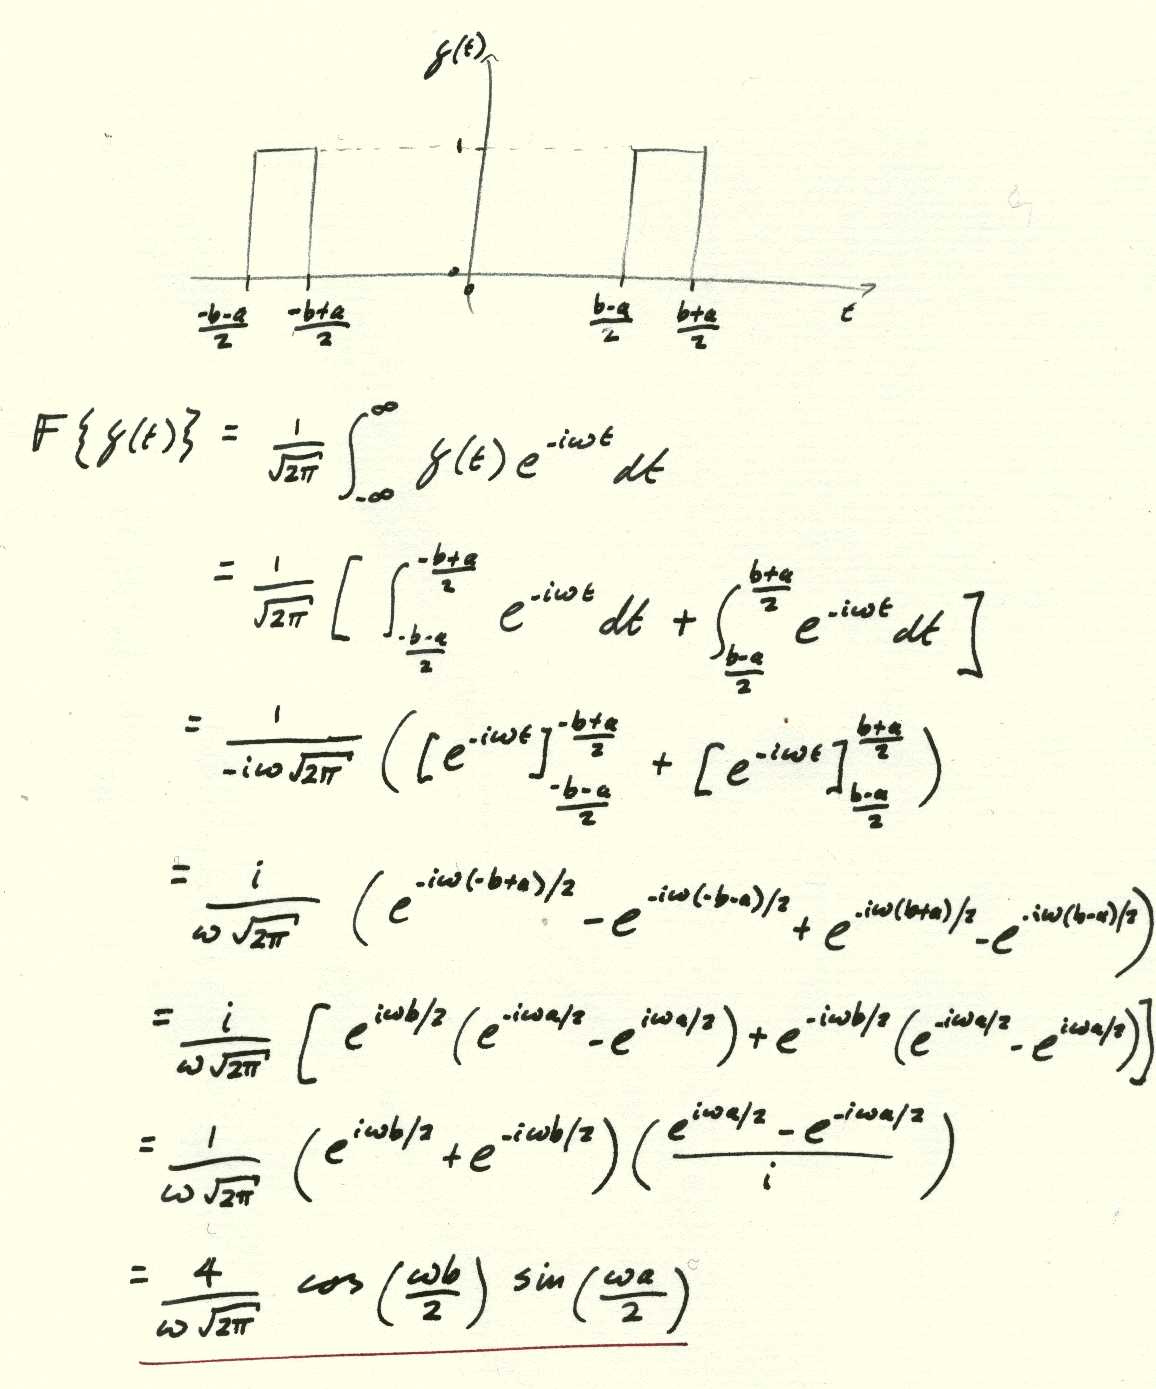 g(t)
1
0
0
t
(-b-a)/2 (-b+a)/2 (b-a)/2 (b+a)/2
𝔽{g(t)} = 1/√(2π) ∫_{-∞}^{∞} g(t) e^{-iωt} dt
= 1/√(2π) [ ∫_{(-b-a)/2}^{(-b+a)/2} e^{-iωt} dt + ∫_{(b-a)/2}^{(b+a)/2} e^{-iωt} dt ]
= 1/(-iω√(2π)) ( [e^{-iωt}]_{(-b-a)/2}^{(-b+a)/2} + [e^{-iωt}]_{(b-a)/2}^{(b+a)/2} )
= i/(ω√(2π)) ( e^{-iω(-b+a)/2} - e^{-iω(-b-a)/2} + e^{-iω(b+a)/2} - e^{-iω(b-a)/2} )
= i/(ω√(2π)) [ e^{iωb/2} ( e^{-iωa/2} - e^{iωa/2} ) + e^{-iωb/2} ( e^{-iωa/2} - e^{iωa/2} ) ]
= 1/(ω√(2π)) ( e^{iωb/2} + e^{-iωb/2} ) ( (e^{iωa/2} - e^{-iωa/2})/i )
= 4/(ω√(2π)) cos(ωb/2) sin(ωa/2)